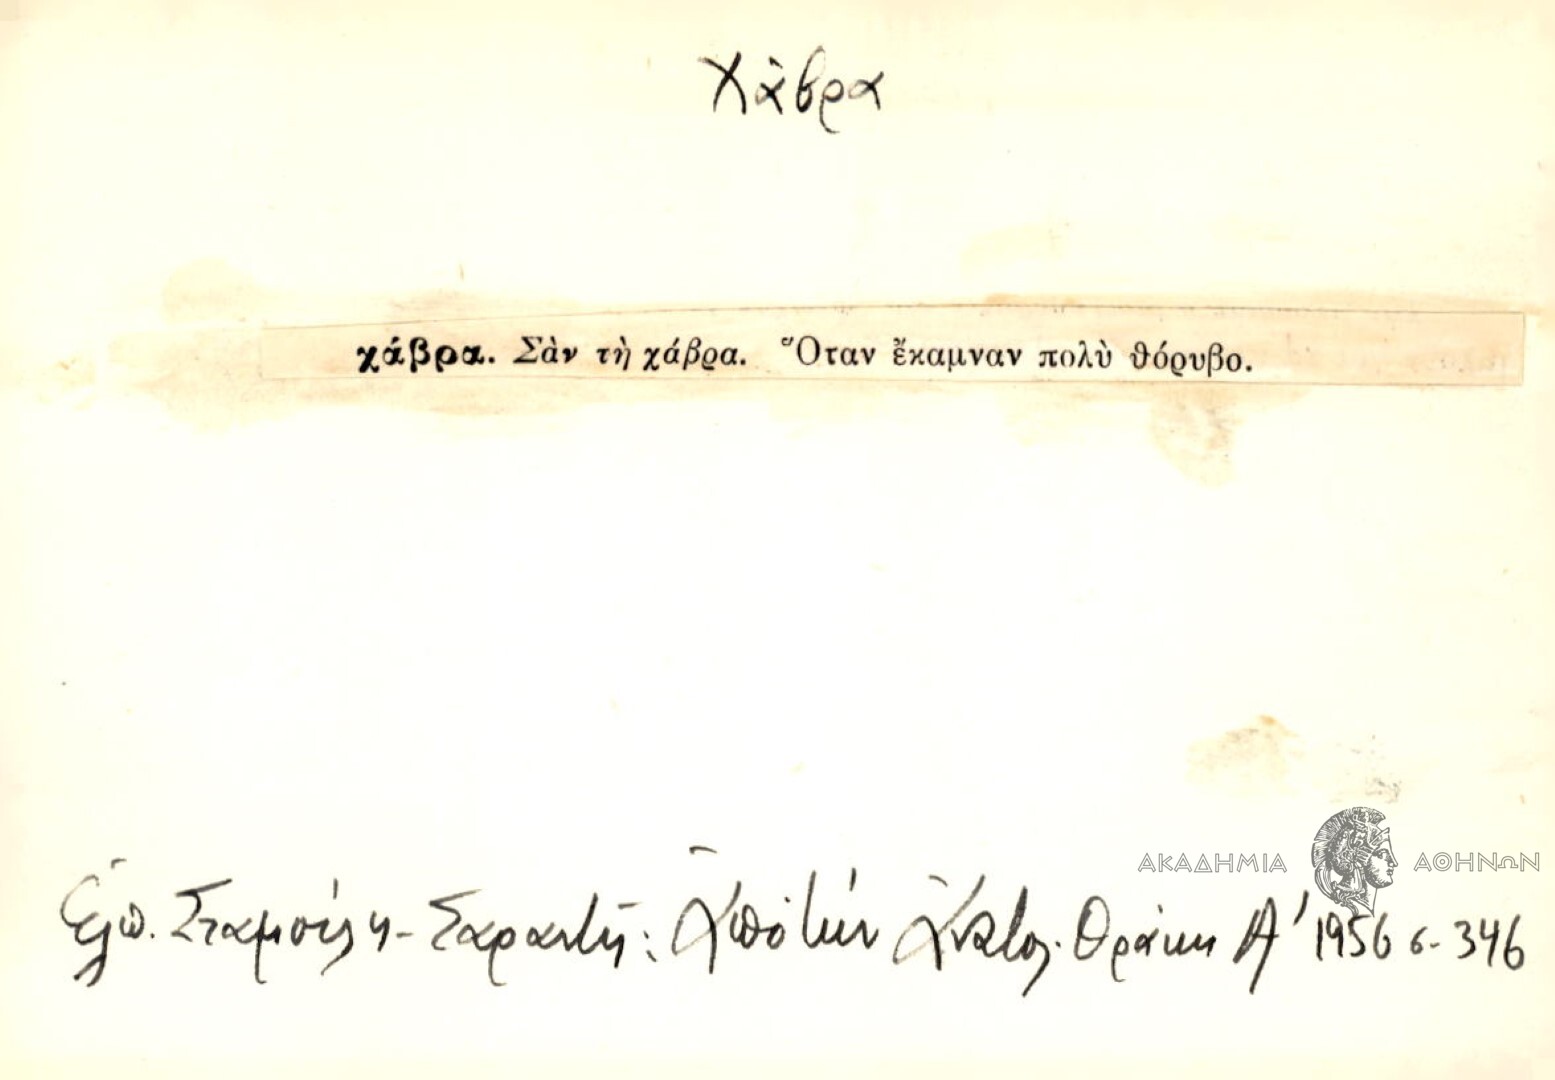 Χάβρα
χάβρα. Σὰν τὴ χάβρα. Ὅταν ἔκαμναν πολὺ θόρυβο.
ΑΚΑΔΗΜΙΑ ΑΘΗΝΩΝ
Ἐλπ. Σταμούλη - Σαραντῆ: Ἀπὸ τὴν Ἀνατολ. Θράκη Α' 1956 σ. 346